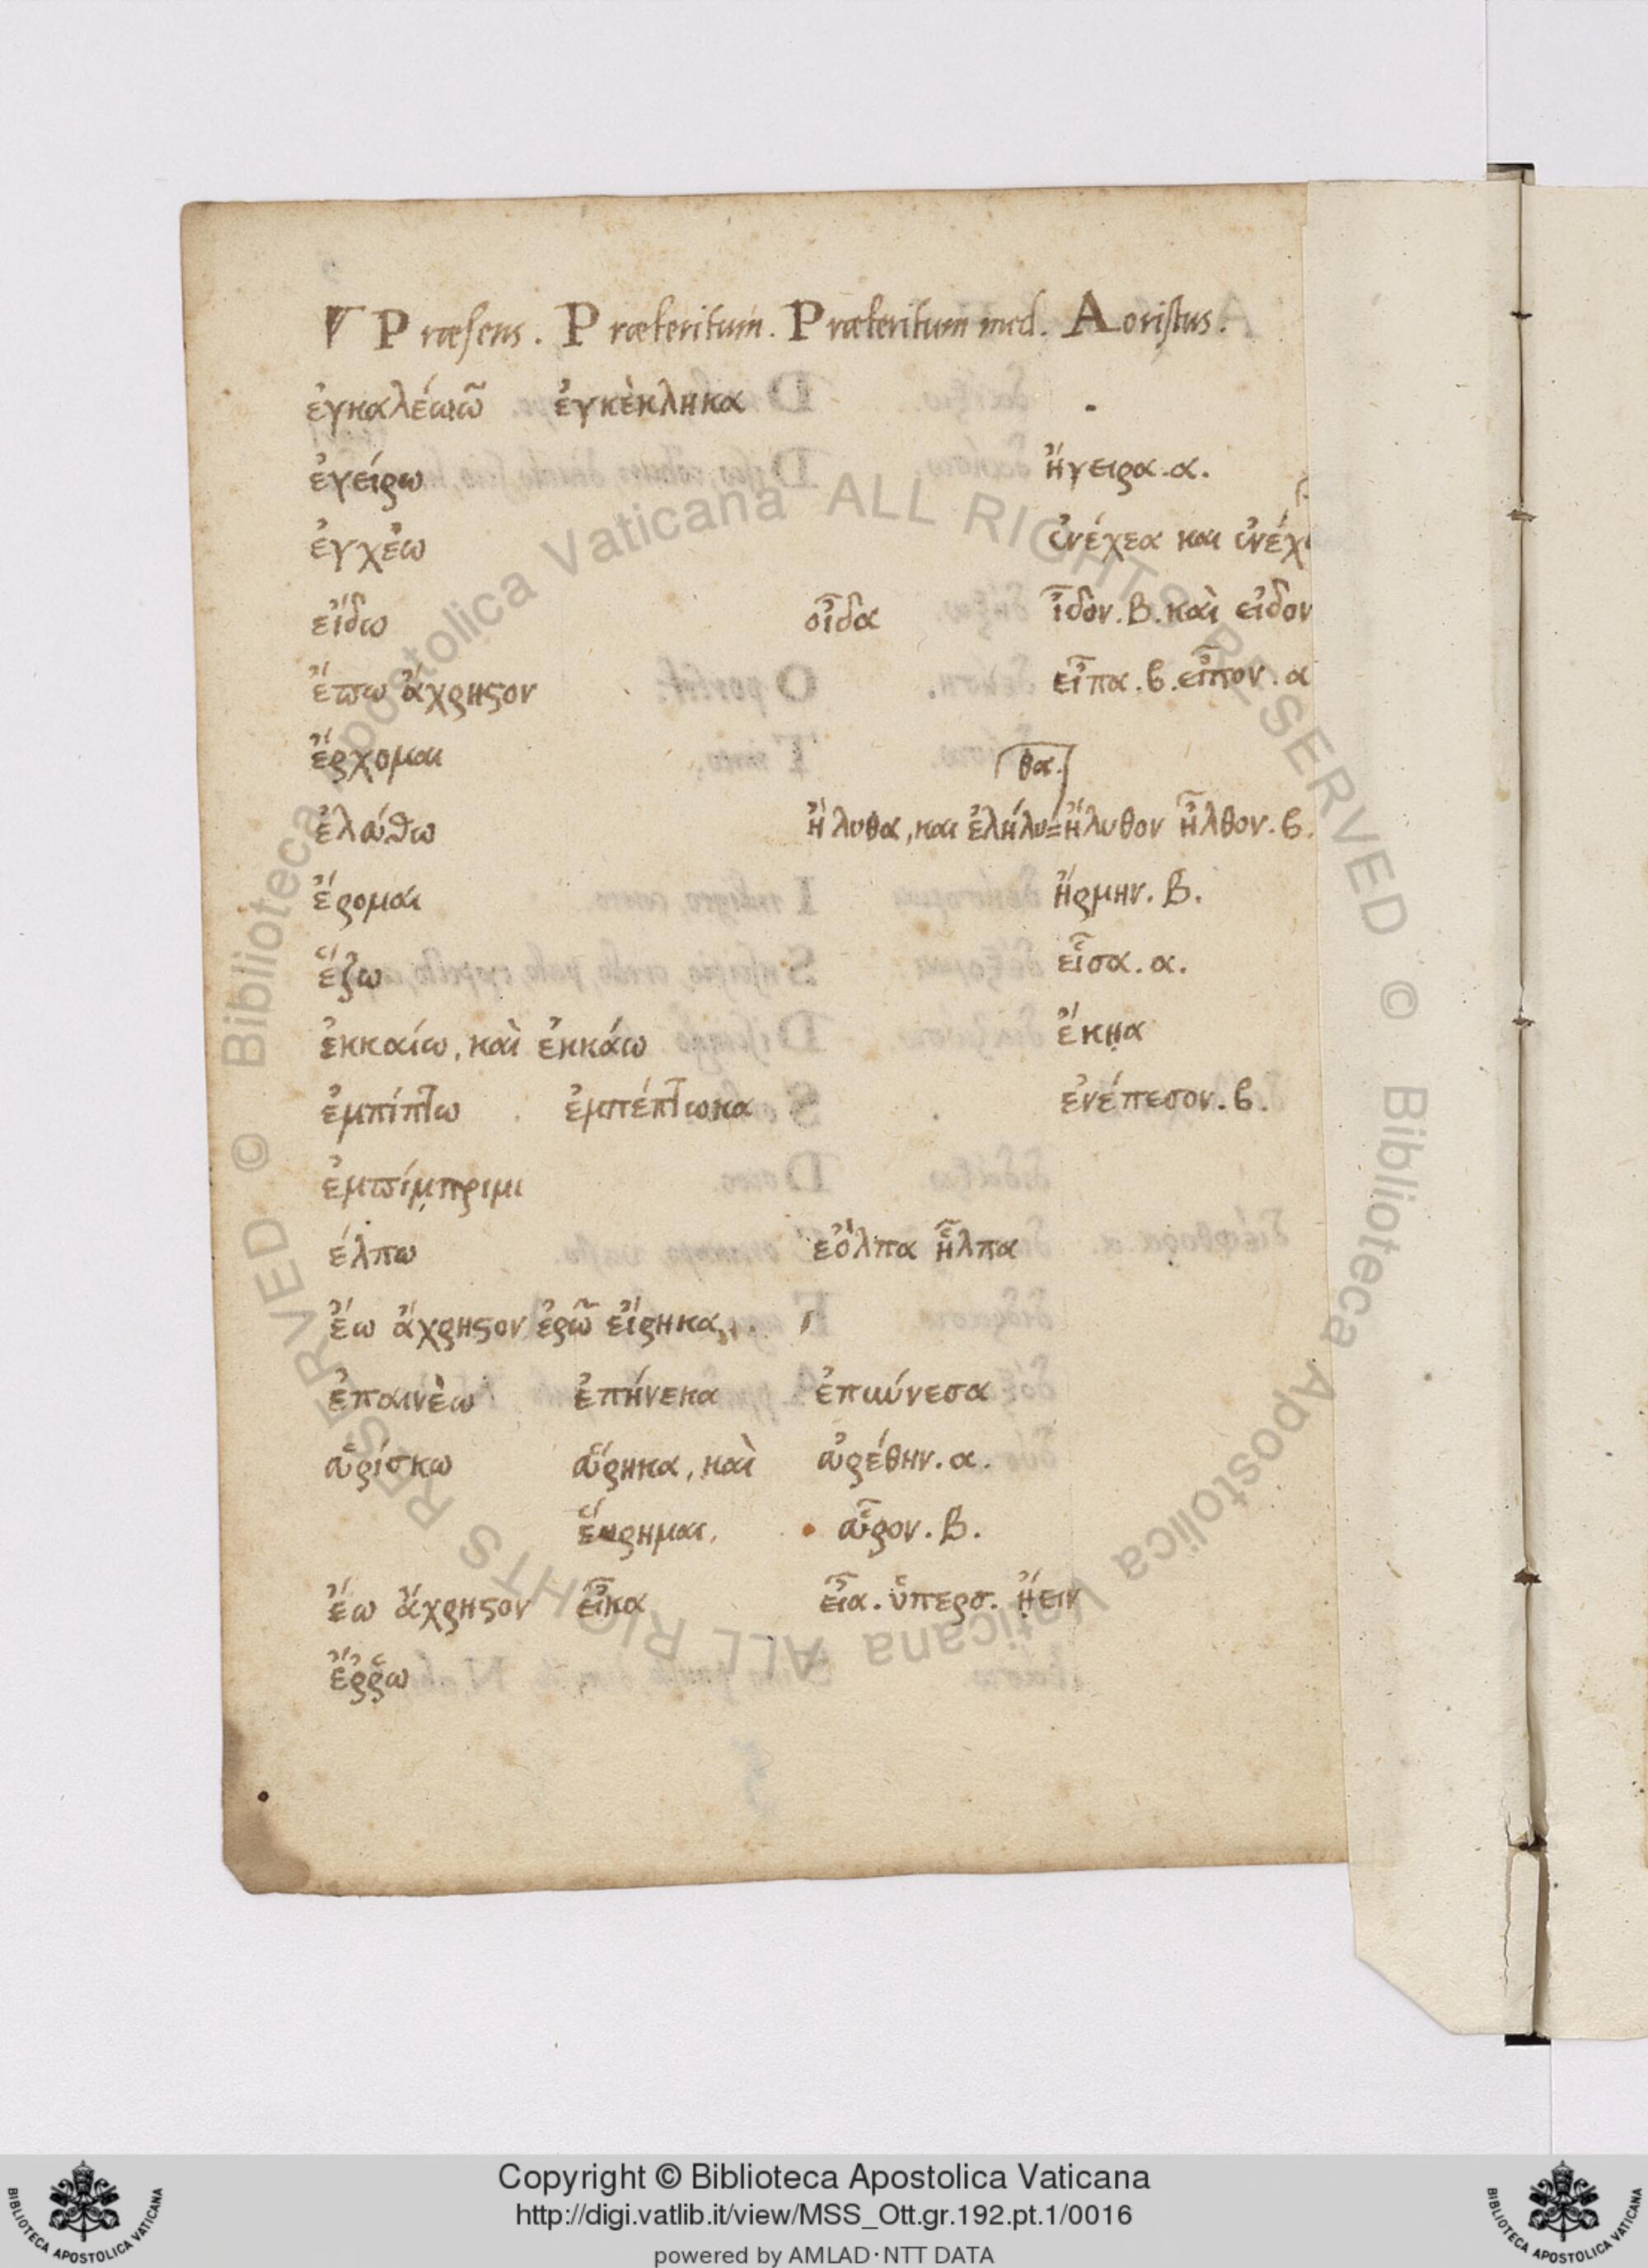 Præsens. Præteritum. Præteritum med. Aoristus.
ἐγκαλέωῶ ἐγκὲκληκα
ἐγείρω ἤγειρα.α.
ἐγχέω ἐνέχεα και ἐνέχ
εἴδω οἶδα ἶδον.β. καὶ εἶδον
ἔπω ἄχρηϛον εἶπα.β. εἶπον.α
ἔρχομαι
θα.
ἐλαύθω ἤλυθα, και ἐλήλυ= ἤλυθον ἦλθον.β.
ἔρομαι ἤρμην.β.
ἕζω εἶσα.α.
ἐκκαίω, καὶ ἐκκάω ἔκῃα
ἐμπίπτω ἐμπέπτωκα ἐνέπεσον.β.
ἐμπίμπριμι
έλπω εὄλπα ἦλπα
ἔω ἄχρηϛον ἐρῶ εἴρηκα
ἐπαινὲω ἐπήνεκα ἐπῄνεσα
εὑρίσκω εὕρηκα, καὶ εὑρέθην.α.
εὕρημαι. εὗρον.β.
ἔω ἄχρηϛον εἶκα εἶα. ὑπερσ. ᾔειν
ἔῤῥω
Copyright © Biblioteca Apostolica Vaticana
http://digi.vatlib.it/view/MSS_Ott.gr.192.pt.1/0016
powered by AMLAD·NTT DATA
BIBLIOTECA APOSTOLICA VATICANA
BIBLIOTECA APOSTOLICA VATICANA
© Biblioteca Apostolica Vaticana ALL RIGHTS RESERVED
© Biblioteca Apostolica Vaticana ALL RIGHTS RESERVED